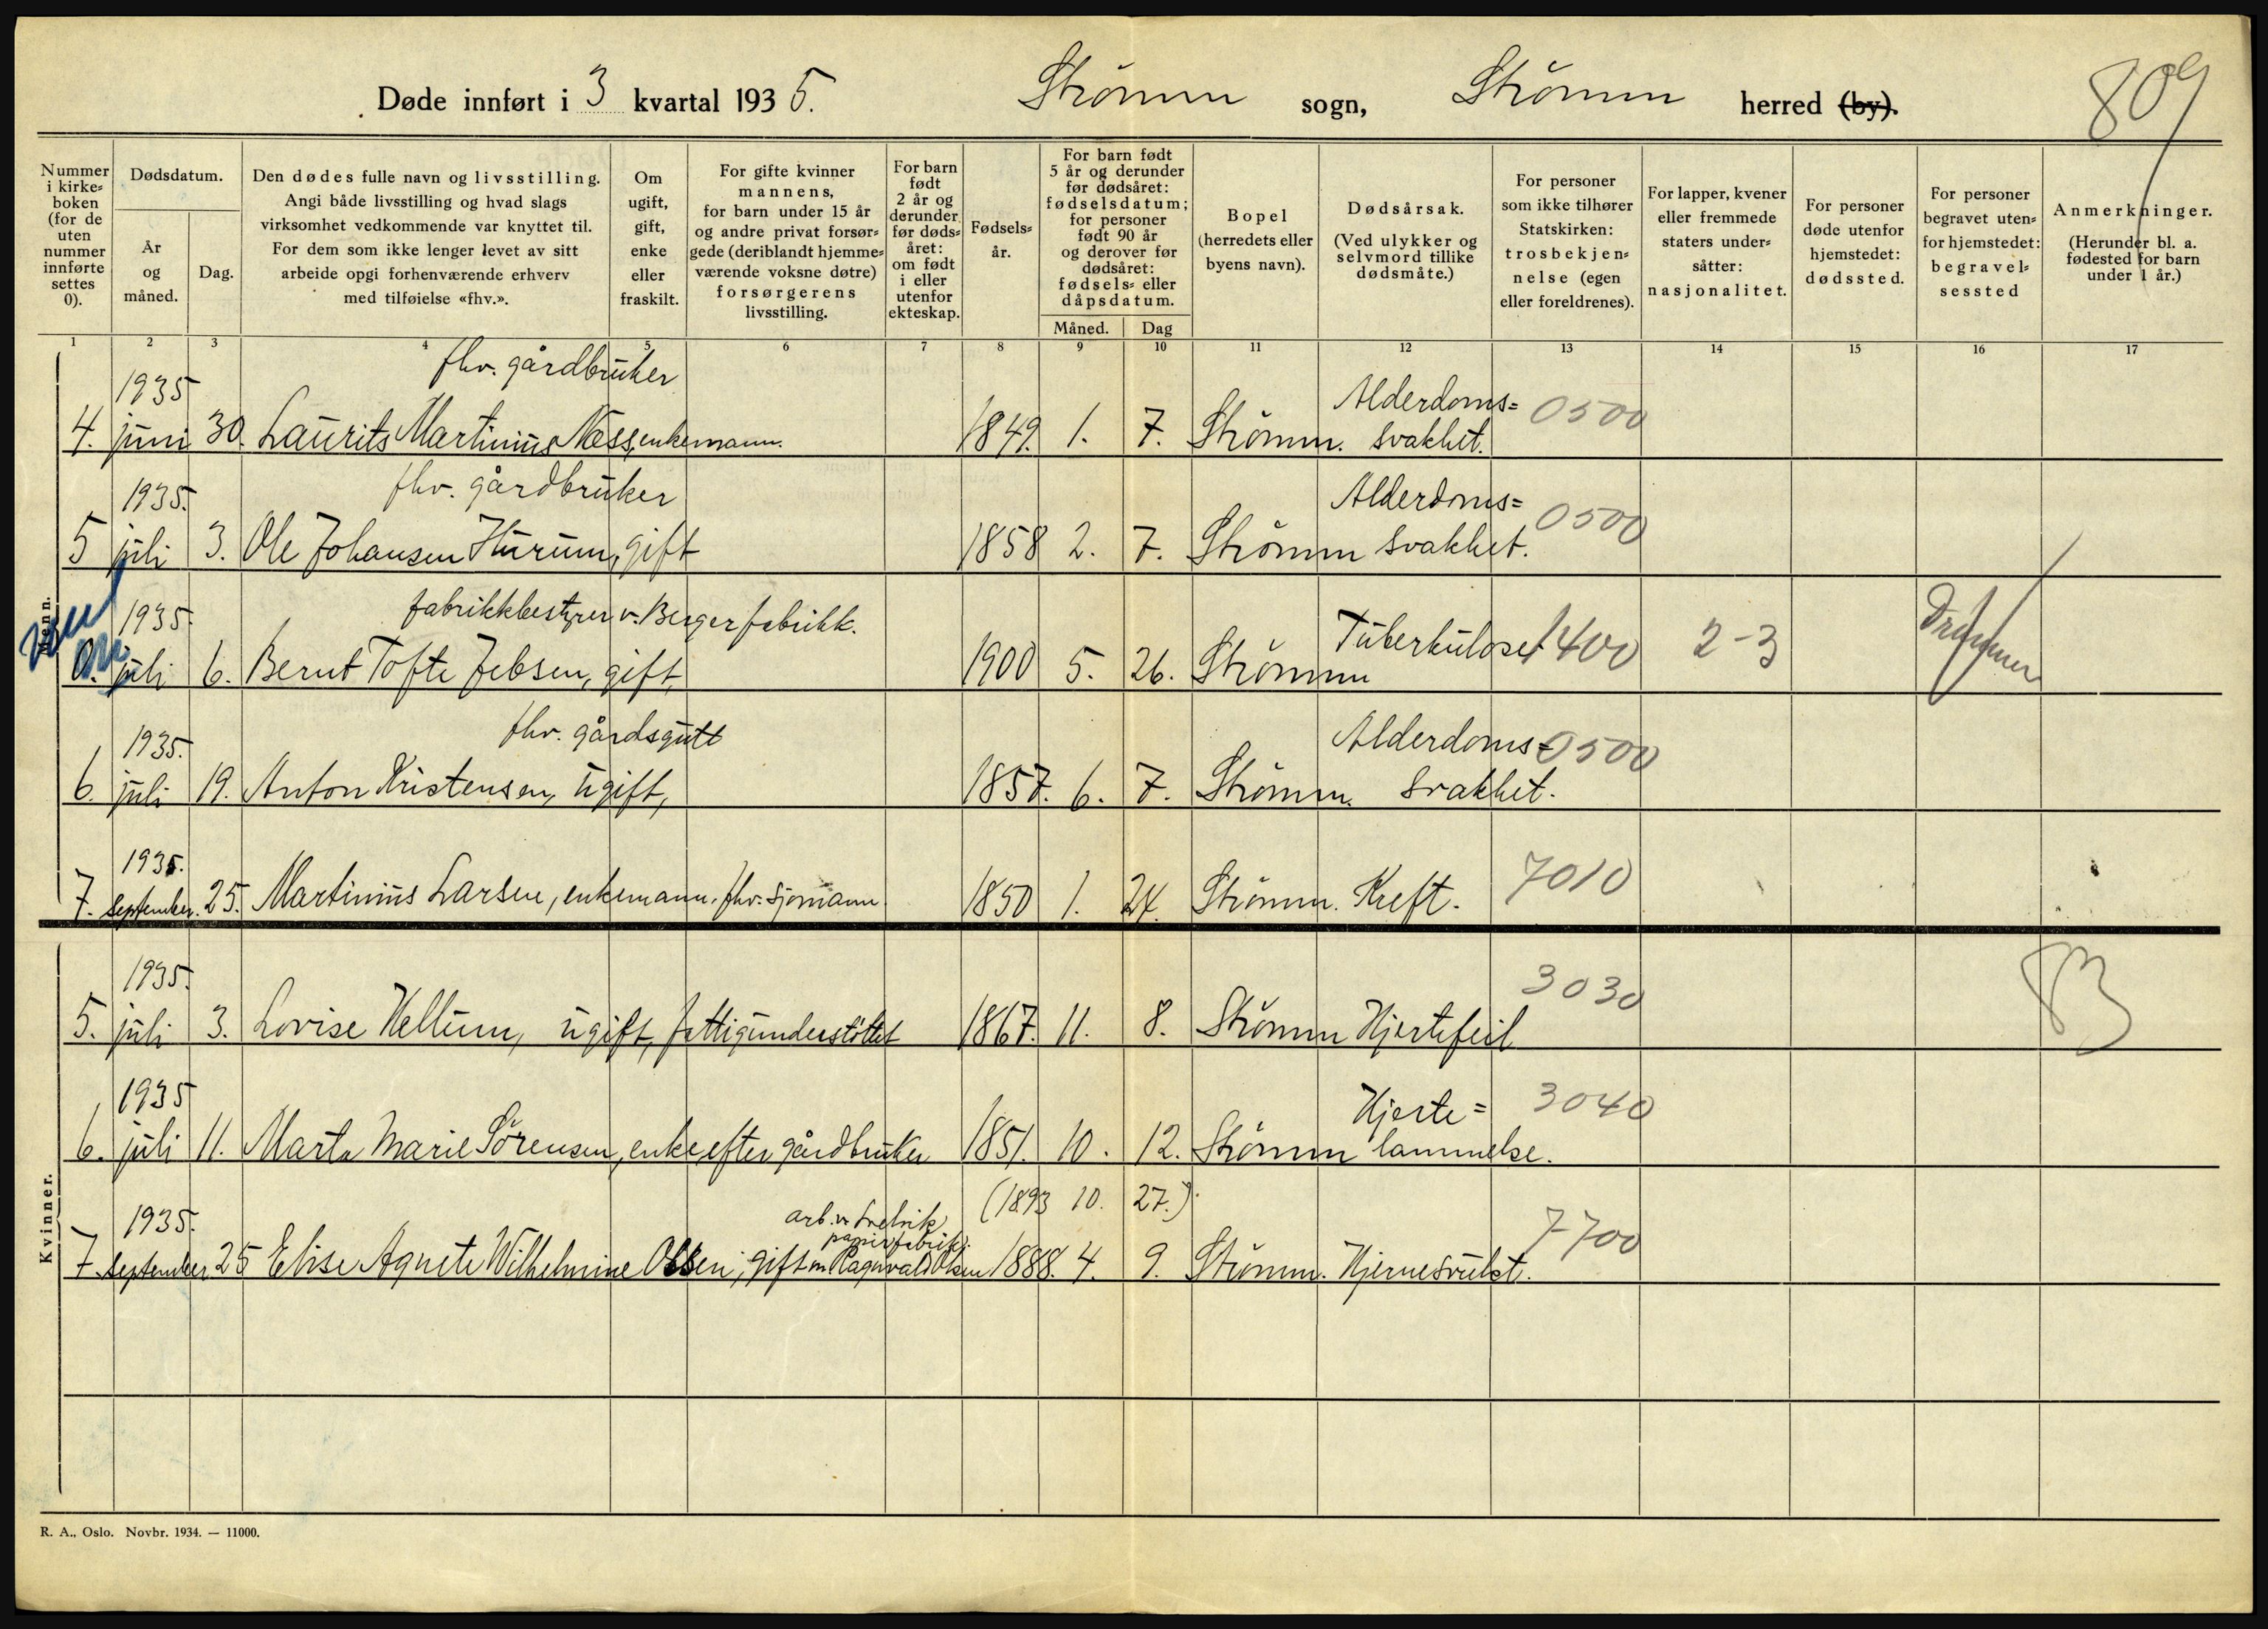 809
Døde innført i 3 kvartal 1935. Strömm sogn, Strömm herred (by).
Nummer i kirke=boken (for de uten nummer innførte settes 0).
Dødsdatum.
År og måned.
Dag.
Den dødes fulle navn og livsstilling.
Angi både livsstilling og hvad slags
virksomhet vedkommende var knyttet til.
For dem som ikke lenger levet av sitt
arbeide opgi forhenværende erhverv
med tilføielse «fhv.».
Om ugift, gift, enke eller fraskilt.
For gifte kvinner
mannens,
for barn under 15 år
og andre privat forsør=
gede (deriblandt hjemme=
værende voksne døtre)
forsørgerens
livsstilling.
For barn født 2 år og derunder før døds=året: om født i eller utenfor ekteskap.
Fødsels=år.
For barn født
5 år og derunder
før dødsåret:
fødselsdatum;
for personer
født 90 år
og derover før
dødsåret:
fødsels= eller
dåpsdatum.
Måned. Dag
Bopel
(herredets eller
byens navn).
Dødsårsak.
(Ved ulykker og
selvmord tillike
dødsmåte.)
For personer
som ikke tilhører
Statskirken:
trosbekjen=
nelse (egen
eller foreldrenes).
For lapper, kvener
eller fremmede
staters under=
såtter:
nasjonalitet.
For personer
døde utenfor
hjemstedet:
dødssted.
For personer
begravet uten=
for hjemstedet:
begravel=
sessted
Anmerkninger.
(Herunder bl. a.
fødested for barn
under 1 år.)
1 2 3 4 5 6 7 8 9 10 11 12 13 14 15 16 17
fhv. gårdbruker
1935 Alderdoms= 0500
4. juni 30. Laurits Martinius Næss, enkemann. 1849. 1. 7. Strömm. svakhet.
fhv. gårdbruker
1935. Alderdoms= 0500
5 juli 3. Ole Johansen Hurum, gift 1858 2. 7. Strömm svakhet.
Menn.
1935. fabrikkbestyrer v. Berger fabrikk. Tuberkulose 1400 2-3 Drammen
0. juli 6. Bernt Tofte Jebsen, gift, 1900 5. 26. Strömm
fhv. gårdsgutt
1935. Alderdoms= 0500
6. juli 19. Anton Kristensen, ugift, 1857. 6. 7. Strömm. svakhet.
1935. 7010
7. september. 25. Martinius Larsen, enkemann, fhv. sjömann 1850 1. 24. Strömm. Kreft.
1935. 3030 83
5. juli 3. Lovise Hellum, ugift, fattigunderstöttet 1867. 11. 8. Strömm Hjertefeil
1935 Hjerte= 3040
6. juli 11. Marta Marie Sörensen, enke efter gårdbruker 1851. 10. 12. Strömm lammelse.
Kvinner.
(1893 10. 27.)
1935. arb. v.
papirfabrik. 7700
7 september 25 Elise Agnete Wilhelmine Olsen, gift m Ragnvald Olsen 1888. 4. 9. Strömm. Hjernesvulst.
R. A., Oslo. Novbr. 1934. — 11000.